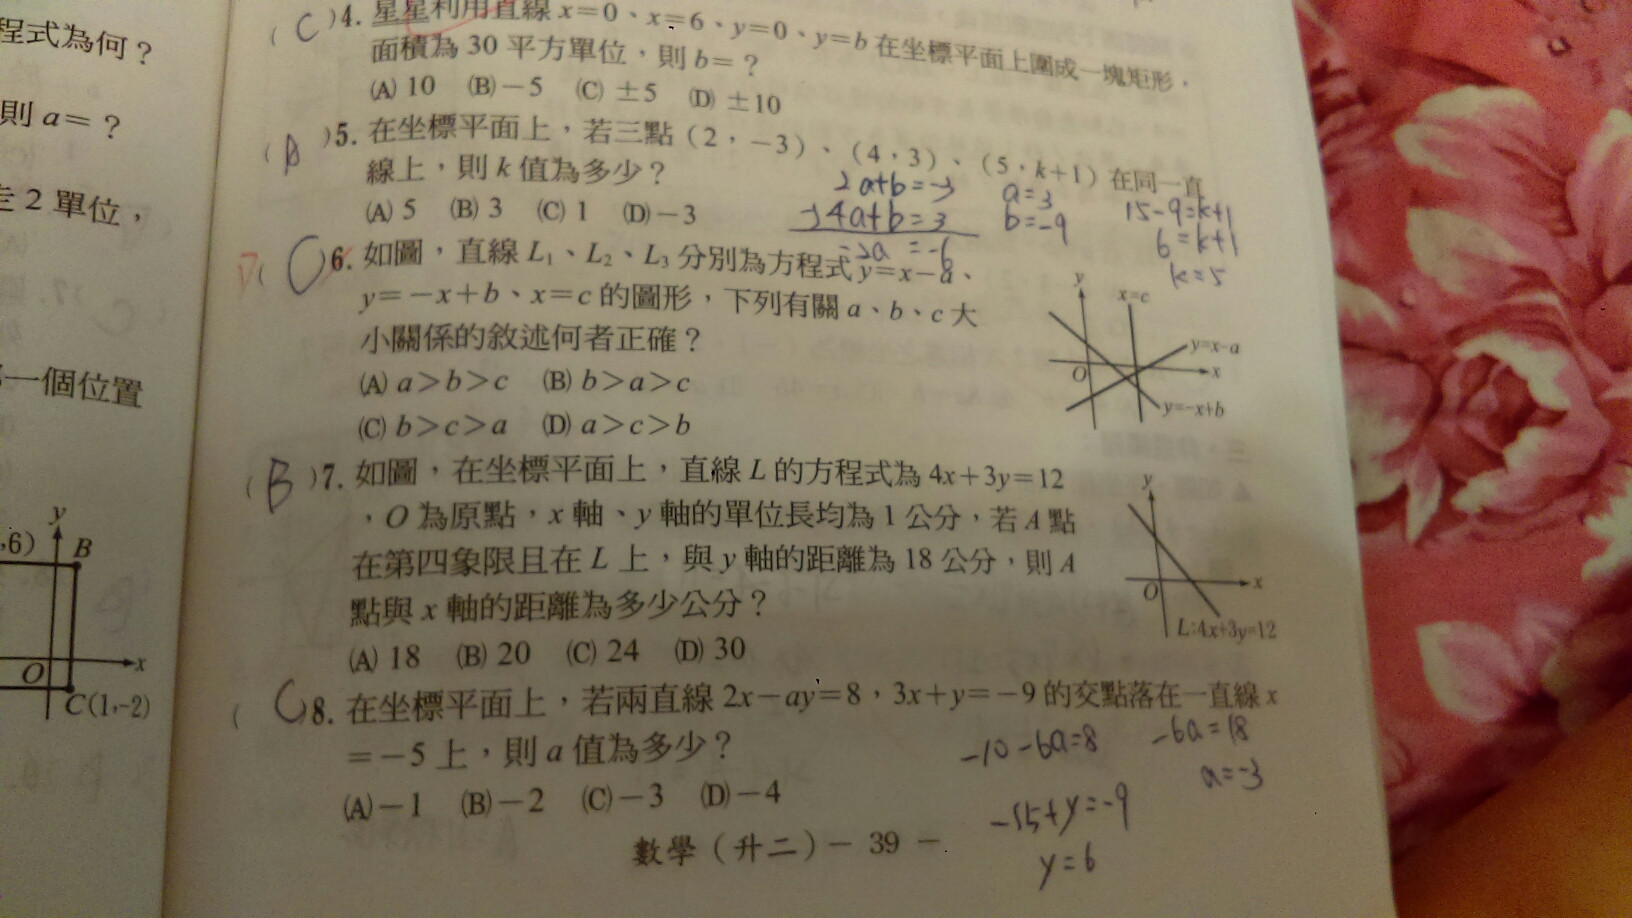 程式為何？
則 a＝？
走 2 單位，
一個位置
,6)
y
B
O
x
C(1,-2)
( C )4. 星星利用直線 x＝0、x＝6、y＝0、y＝b 在坐標平面上圍成一塊矩形，
面積為 30 平方單位，則 b＝？
(A) 10 (B)－5 (C) ±5 (D) ±10
( A )5. 在坐標平面上，若三點（2，－3）、（4，3）、（5，k＋1）在同一直
線上，則 k 值為多少？
(A) 5 (B) 3 (C) 1 (D)－3
2a+b=-3
-) 4a+b=3
-2a =-6
a=3
b=-9
15-9=k+1
6=k+1
k=5
D ( C )6. 如圖，直線 L₁、L₂、L₃ 分別為方程式 y＝x－a、
y＝－x＋b、x＝c 的圖形，下列有關 a、b、c 大
小關係的敘述何者正確？
(A) a＞b＞c (B) b＞a＞c
(C) b＞c＞a (D) a＞c＞b
y
x=c
y=x-a
O
x
y=-x+b
( B )7. 如圖，在坐標平面上，直線 L 的方程式為 4x＋3y＝12
，O 為原點，x 軸、y 軸的單位長均為 1 公分，若 A 點
在第四象限且在 L 上，與 y 軸的距離為 18 公分，則 A
點與 x 軸的距離為多少公分？
(A) 18 (B) 20 (C) 24 (D) 30
y
O
x
L:4x+3y=12
( C )8. 在坐標平面上，若兩直線 2x－ay＝8，3x＋y＝－9 的交點落在一直線 x
＝－5 上，則 a 值為多少？
(A)－1 (B)－2 (C)－3 (D)－4
-10-6a=8
-6a=18
a=-3
-15+y=-9
y=6
數學（升二）－ 39 －